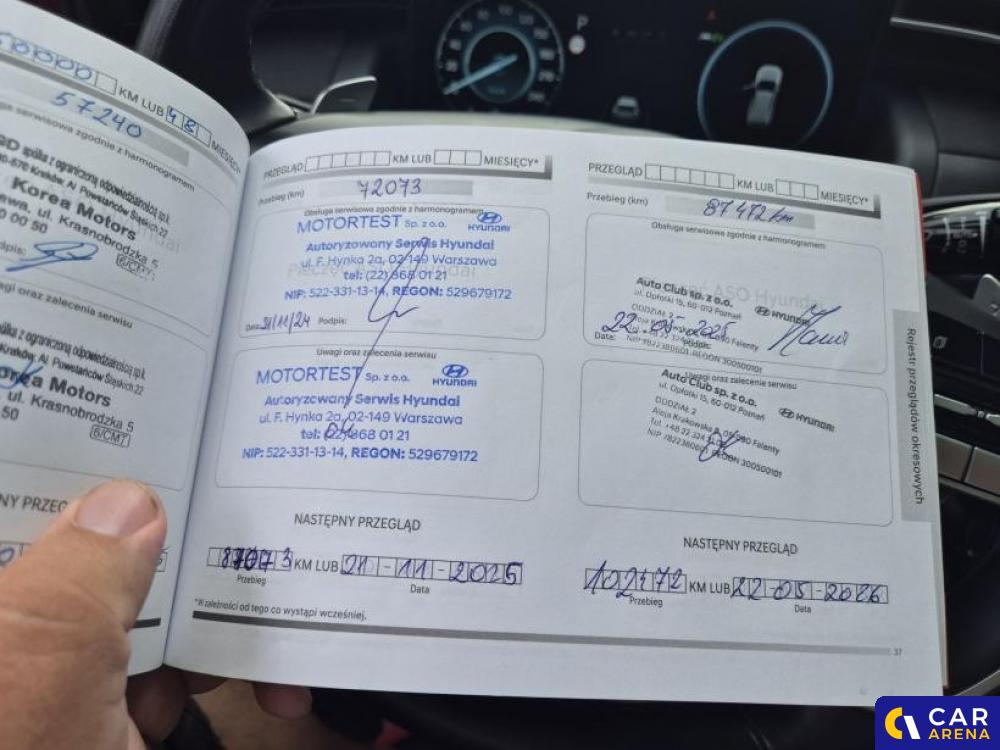 50000 KM LUB 48 MIESIĘCY*
57240
obsługa serwisowa zgodnie z harmonogramem
spółka z ograniczoną odpowiedzialnością sp.k.
Kraków, Al. Powstańców Śląskich 22
Korea Motors
ul. Krasnobrodzka 5
00 50
6/CMT
Podpis:
Uwagi oraz zalecenia serwisu
spółka z ograniczoną odpowiedzialnością sp.k.
Kraków, Al. Powstańców Śląskich 22
Korea Motors
ul. Krasnobrodzka 5
50
6/CMT
PRZEGLĄD KM LUB MIESIĘCY*
Przebieg (km) 72073
Obsługa serwisowa zgodnie z harmonogramem
MOTORTEST Sp. z o.o. HYUNDAI
Autoryzowany Serwis Hyundai
ul. F. Hynka 2a, 02-149 Warszawa
tel: (22) 868 01 21
NIP: 522-331-13-14, REGON: 529679172
Data: 21/11/24 Podpis:
Uwagi oraz zalecenia serwisu
MOTORTEST Sp. z o.o. HYUNDAI
Autoryzowany Serwis Hyundai
ul. F. Hynka 2a, 02-149 Warszawa
tel: (22) 868 01 21
NIP: 522-331-13-14, REGON: 529679172
NASTĘPNY PRZEGLĄD
87073 KM LUB 21-11-2025
Przebieg Data
*W zależności od tego co wystąpi wcześniej.
PRZEGLĄD KM LUB MIESIĘCY*
Przebieg (km) 87472 km
Obsługa serwisowa zgodnie z harmonogramem
Auto Club sp. z o.o.
ul. Opłotki 15, 60-012 Poznań HYUNDAI
ODDZIAŁ 2
22-05-2025
Data: Podpis:
NIP 7822380601 REGON 300500101
Uwagi oraz zalecenia serwisu
Auto Club sp. z o.o.
ul. Opłotki 15, 60-012 Poznań HYUNDAI
ODDZIAŁ 2
Aleja Krakowska Falenty
Tel. +48 22 324
NIP 7822380601 REGON 300500101
NASTĘPNY PRZEGLĄD
102472 KM LUB 22-05-2026
Przebieg Data
37
Rejestr przeglądów okresowych
P
CAR
ARENA